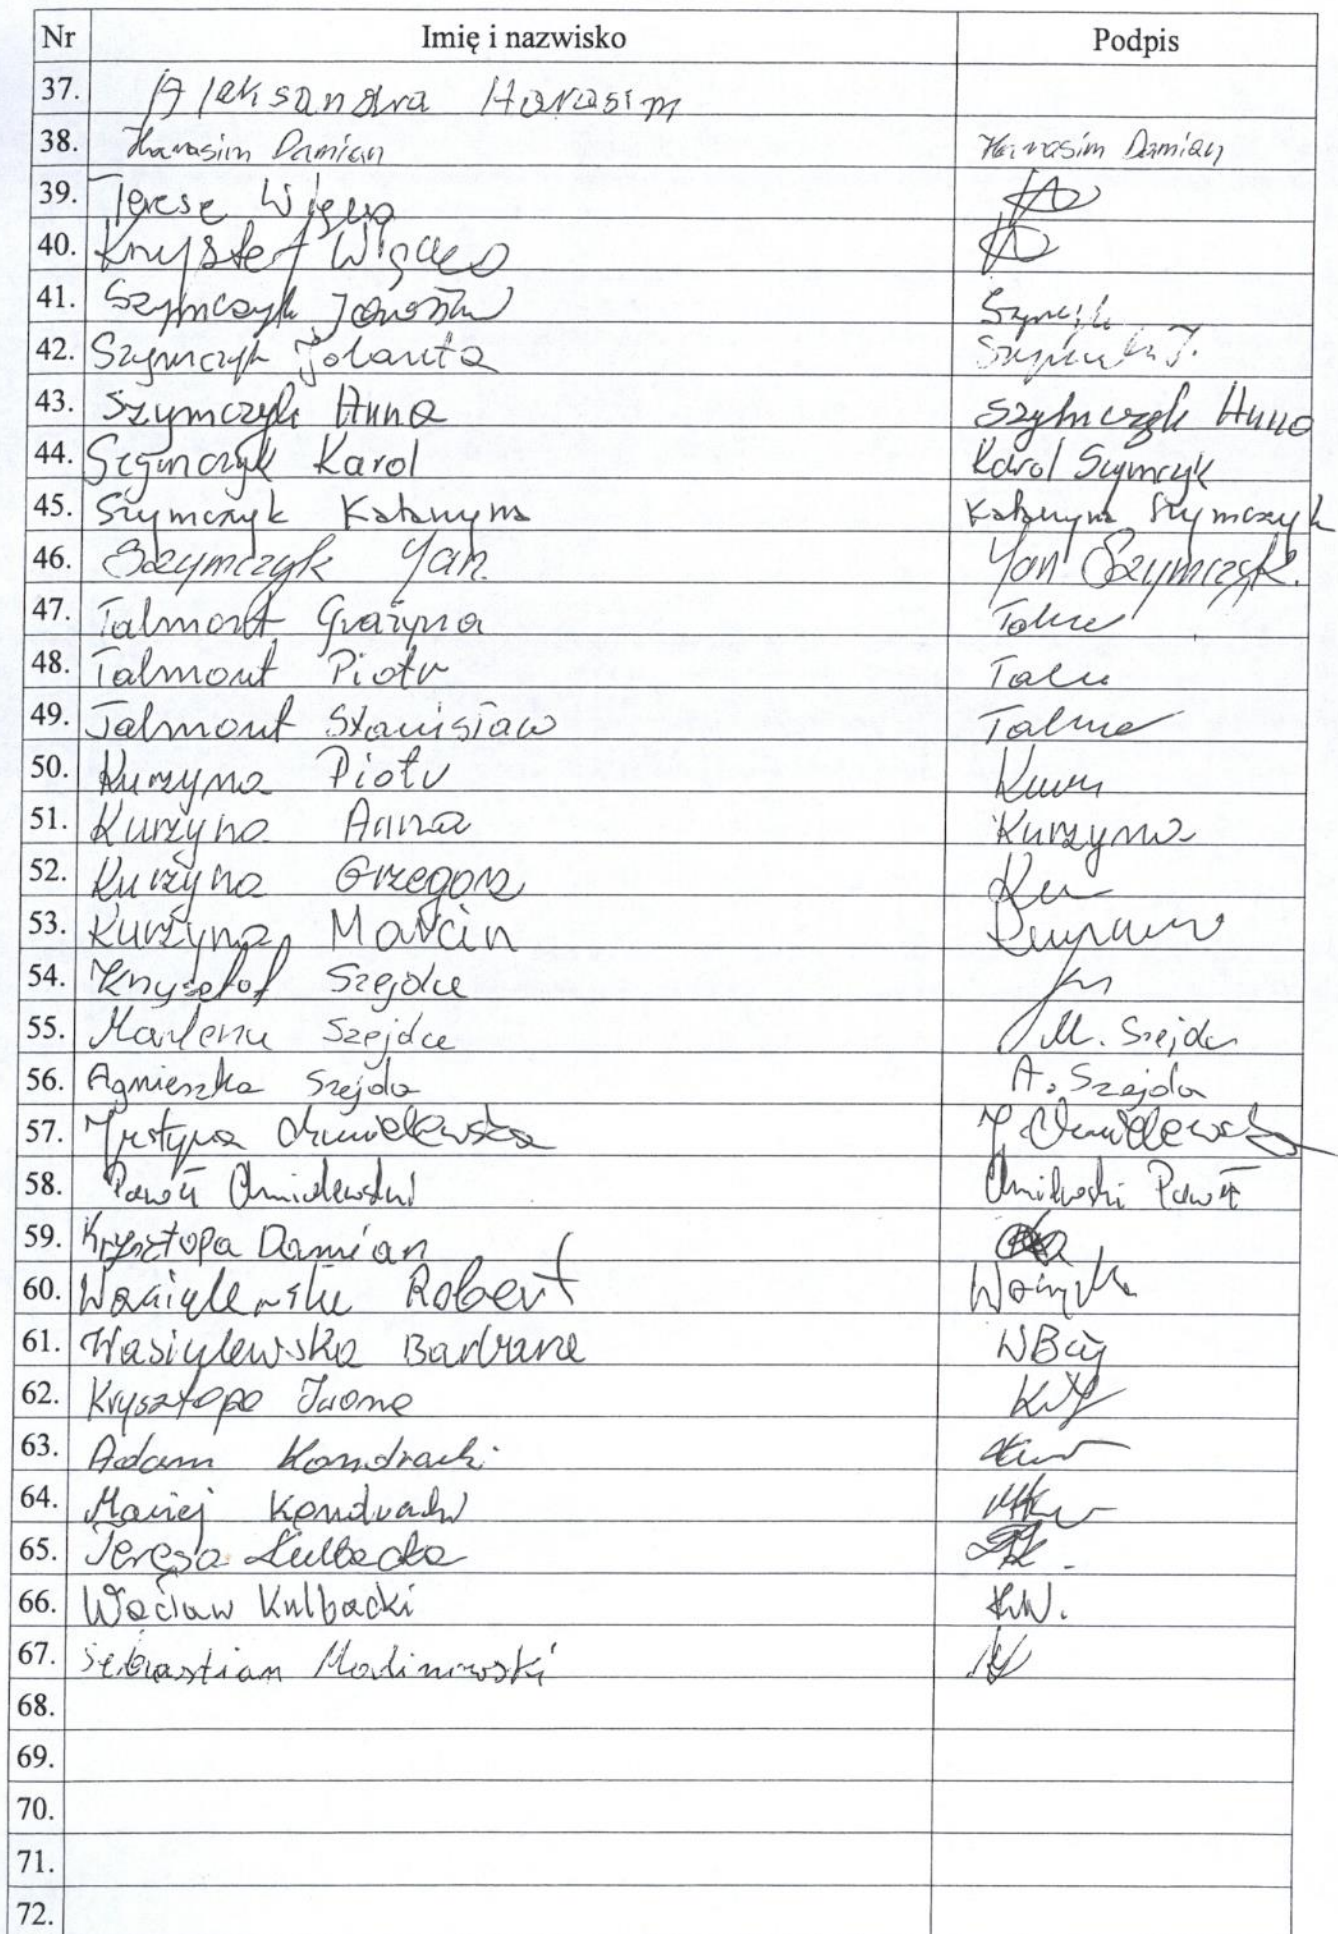 Nr Imię i nazwisko Podpis
37. Aleksandra Harasim
38. Harasim Damian Harasim Damian
39. Teresa
40. Krysztof
41. Szymczyk Jarosław
42. Szymczyk Jolanta
43. Szymczyk Anna Szymczyk Anna
44. Szymczyk Karol Karol Szymczyk
45. Szymczyk Katarzyna Katarzyna Szymczyk
46. Szymczyk Jan. Jan Szymczyk.
47. Talmont Grażyna
48. Talmont Piotr
49. Talmont Stanisław
50. Kurzyna Piotr
51. Kurzyna Anna Kurzyna
52. Kurzyna Grzegorz
53. Kurzyna Marcin
54. Krzysztof Szejda
55. Marlena Szejda M. Szejda
56. Agnieszka Szejda A. Szejda
57. Justyna Chmielewska J. Chmielewska
58. Paweł Chmielewski Chmielewski Paweł
59. Krysztopa Damian
60. Robert
61. Wasiylewska Barbara
62. Krysztopa Iwona
63. Adam Kondracki
64. Maciej Kondracki
65. Teresa Kulbacka
66. Wacław Kulbacki K.W.
67. Sebastian Malinowski
68.
69.
70.
71.
72.